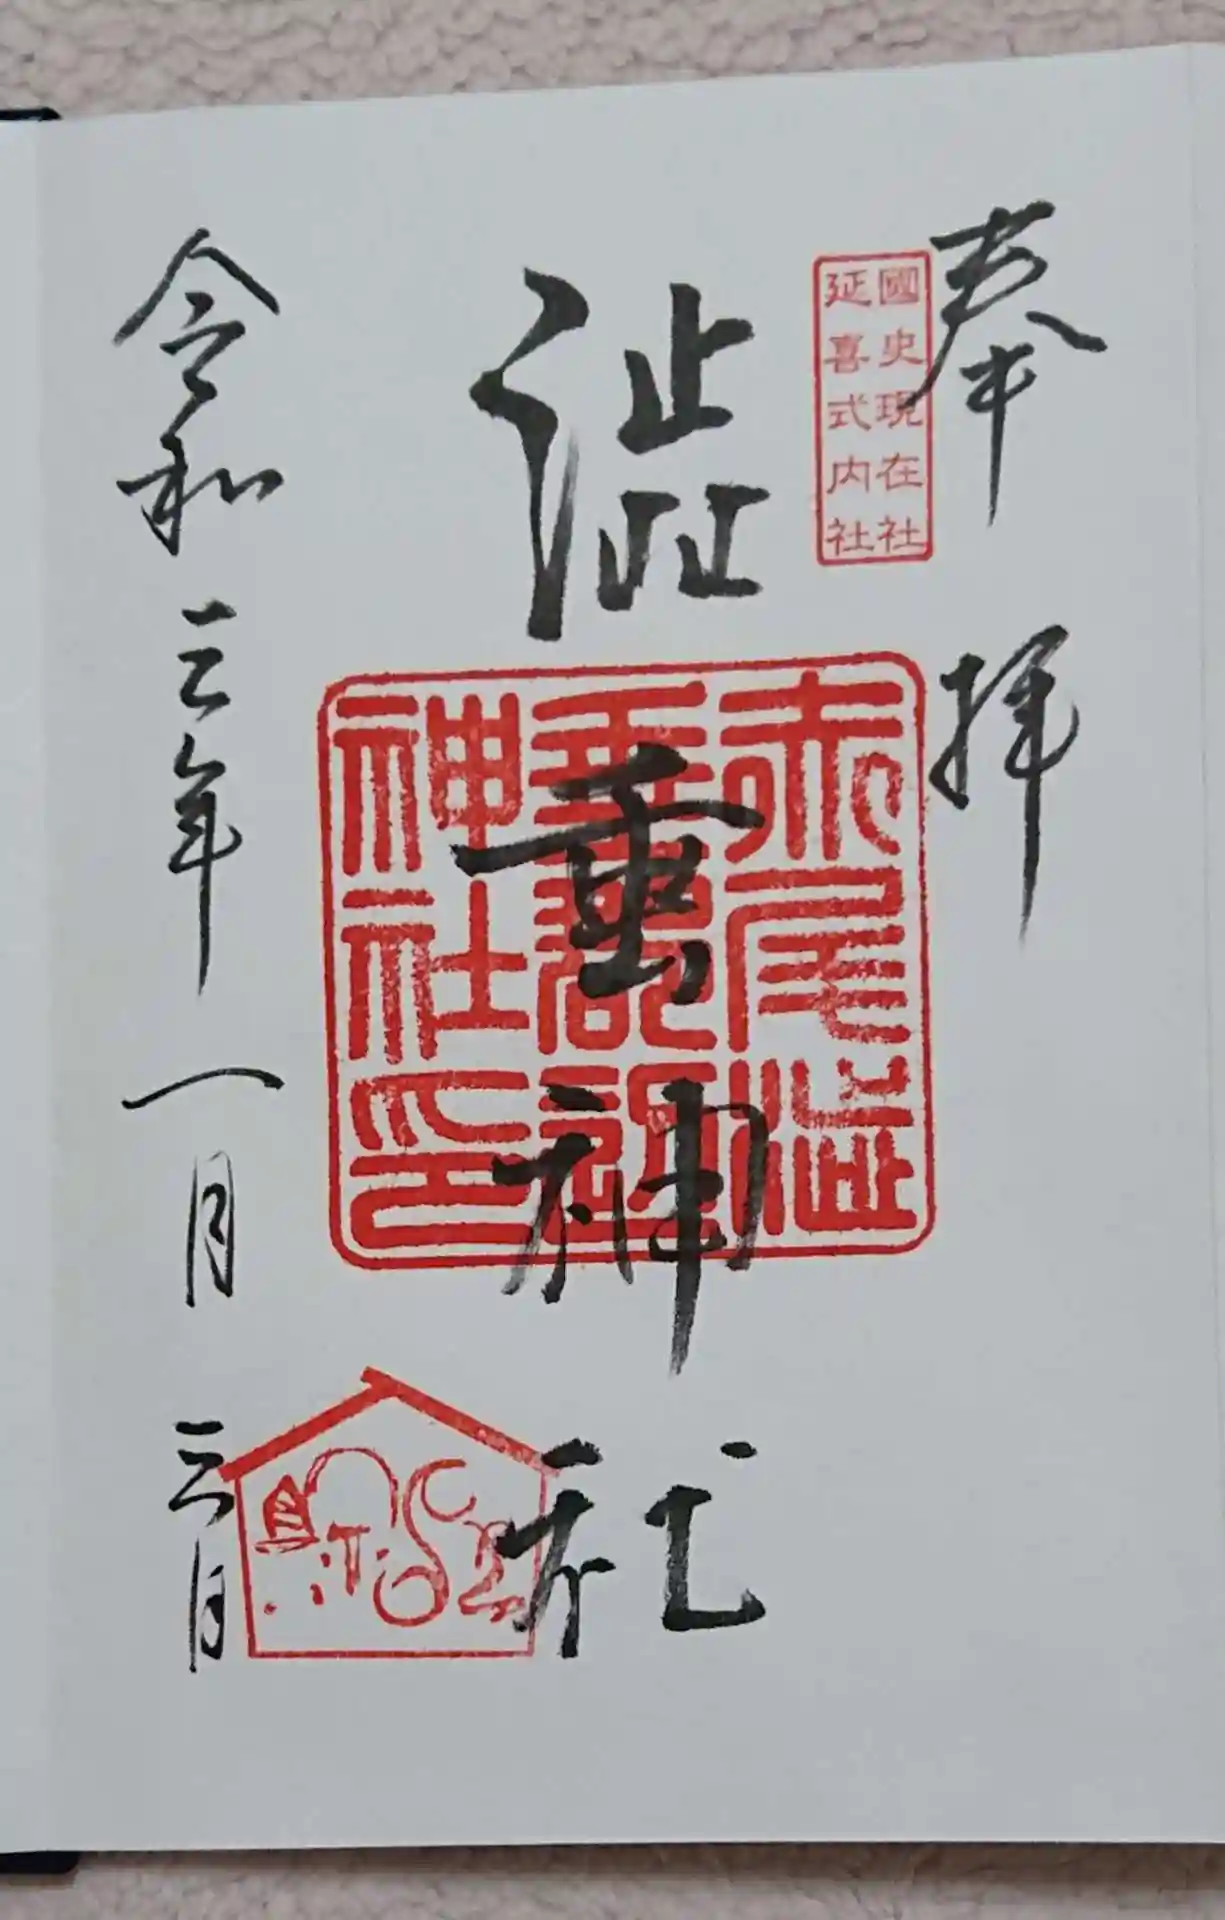 奉拝
國史現在社
延喜式内社
澁垂神社
赤尾澁
垂郡邊
神社印
令和三年一月三日